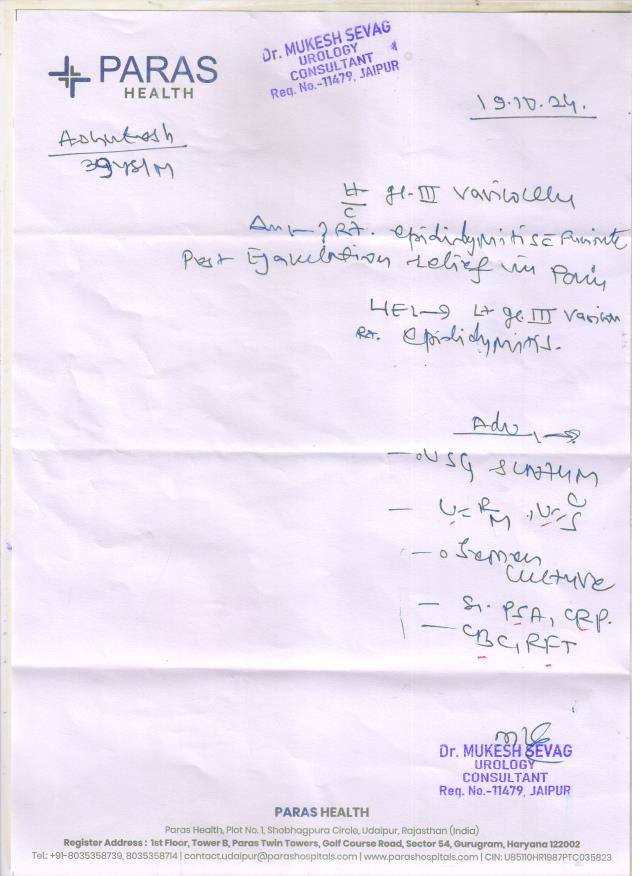 PARAS
HEALTH
Dr. MUKESH SEVAG
UROLOGY
CONSULTANT
Reg. No.-11479, JAIPUR
19.10.24.
Ashutosh
39 YS/M
Lt gr. III varicocele
C
Rt. epididymitis
Post Ejaculation relief in Pain
Lt gr. III
Rt. epididymitis.
Adv
USG SCROTUM
U-R/M, U-C/S
Semen
Culture
Sr. PSA, CRP.
CBC, RFT
Dr. MUKESH SEVAG
UROLOGY
CONSULTANT
Reg. No.-11479, JAIPUR
PARAS HEALTH
Paras Health, Plot No. 1, Shobhagpura Circle, Udaipur, Rajasthan (India)
Register Address : 1st Floor, Tower B, Paras Twin Towers, Golf Course Road, Sector 54, Gurugram, Haryana 122002
Tel.: +91-8035358739, 8035358714 | contact.udaipur@parashospitals.com | www.parashospitals.com | CIN: U85110HR1987PTC035823